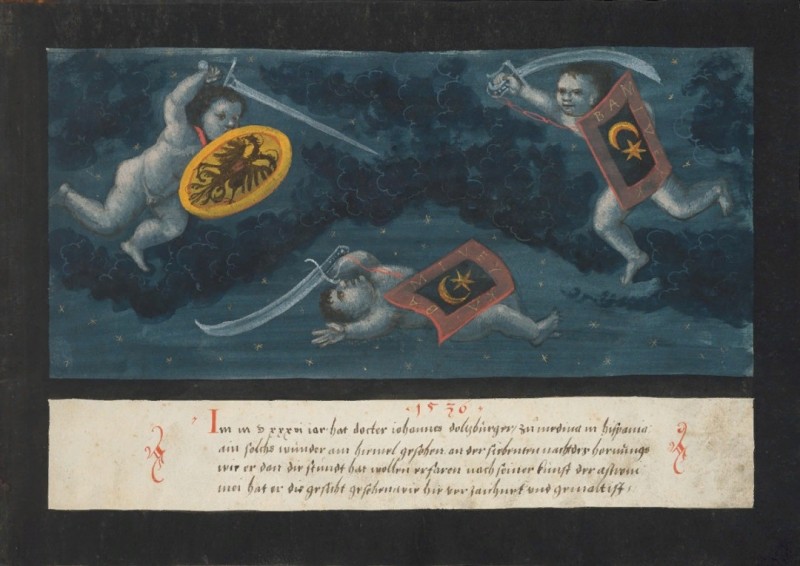 BAM
BAM
· 1536 ·
Im m v xxxvi iar hat docter iohannes dolzbürger zu medina in hispania
ain solchs wunder am himel gesehen an der sibenten nacht des hornungs
wie er dan die stundt hat wollen erfaren nach seiner kunst der astrono
mei hat er die gesicht gesehen wie hie ver zaichnet und gemalt ist.